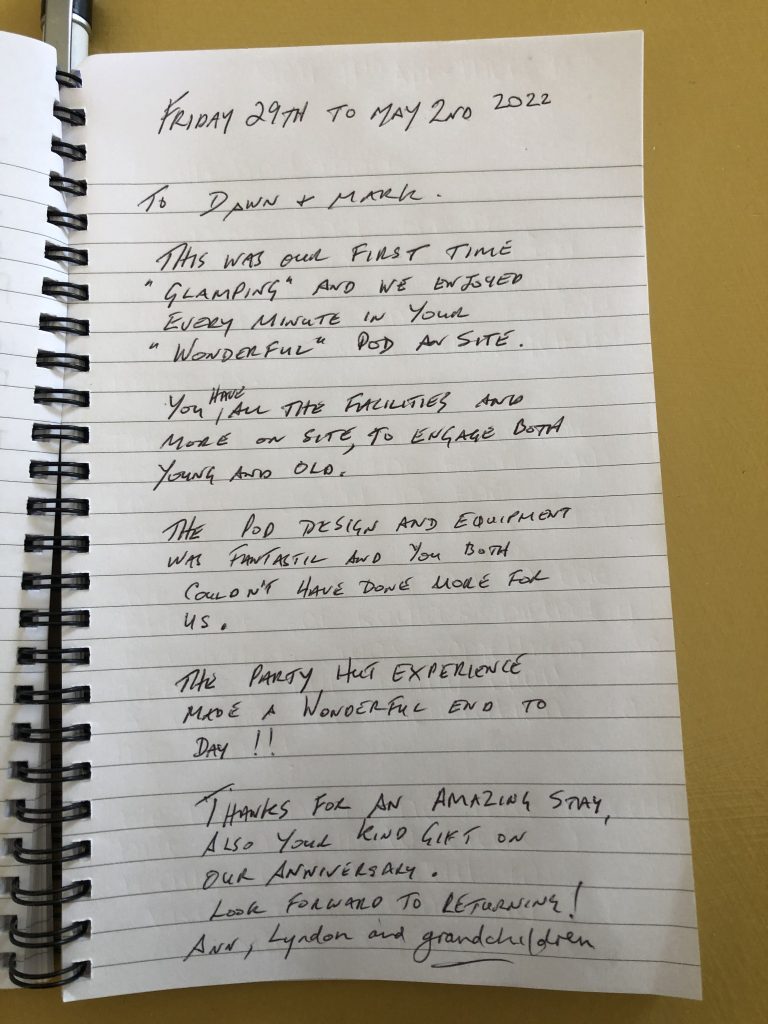 FRIDAY 29TH TO MAY 2ND 2022
TO DAWN + MARK.
THIS WAS OUR FIRST TIME
"GLAMPING" AND WE ENJOYED
EVERY MINUTE IN YOUR
"WONDERFUL" POD AN SITE.
YOU HAVE, ALL THE FACILITIES AND
MORE ON SITE, TO ENGAGE BOTH
YOUNG AND OLD.
THE POD DESIGN AND EQUIPMENT
WAS FANTASTIC AND YOU BOTH
COULDN'T HAVE DONE MORE FOR
US.
THE PARTY HUT EXPERIENCE
MADE A WONDERFUL END TO
DAY !!
THANKS FOR AN AMAZING STAY,
ALSO YOUR KIND GIFT ON
OUR ANNIVERSARY.
LOOK FORWARD TO RETURNING!
ANN, Lyndon and grandchildren